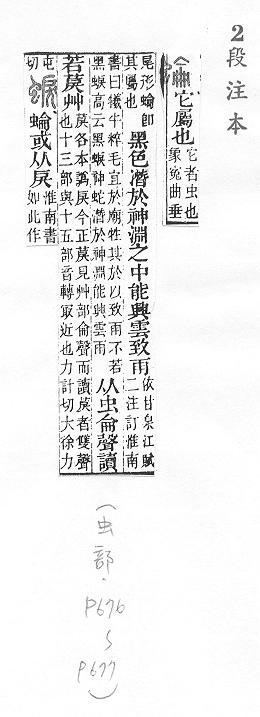 2 段注本
它屬也 它者虫也
象冤曲垂
尾形蜦即
其屬也 黑色潛於神淵之中能興雲致雨 依甘泉江賦
二注訂淮南
書曰犧牛粹毛宜於廟牲其於以致雨不若
黑蜧高云黑蜧神蛇潛於神淵能興雲雨 从虫侖聲讀
若䓞艸 䓞各本譌戾今正䓞見艸部侖聲而讀䓞者雙聲
也十三部與十五部音轉冣近也力計切大徐力
屯
切 蜦或从戾 淮南書
如此作
(虫部.
P676
~
P677)